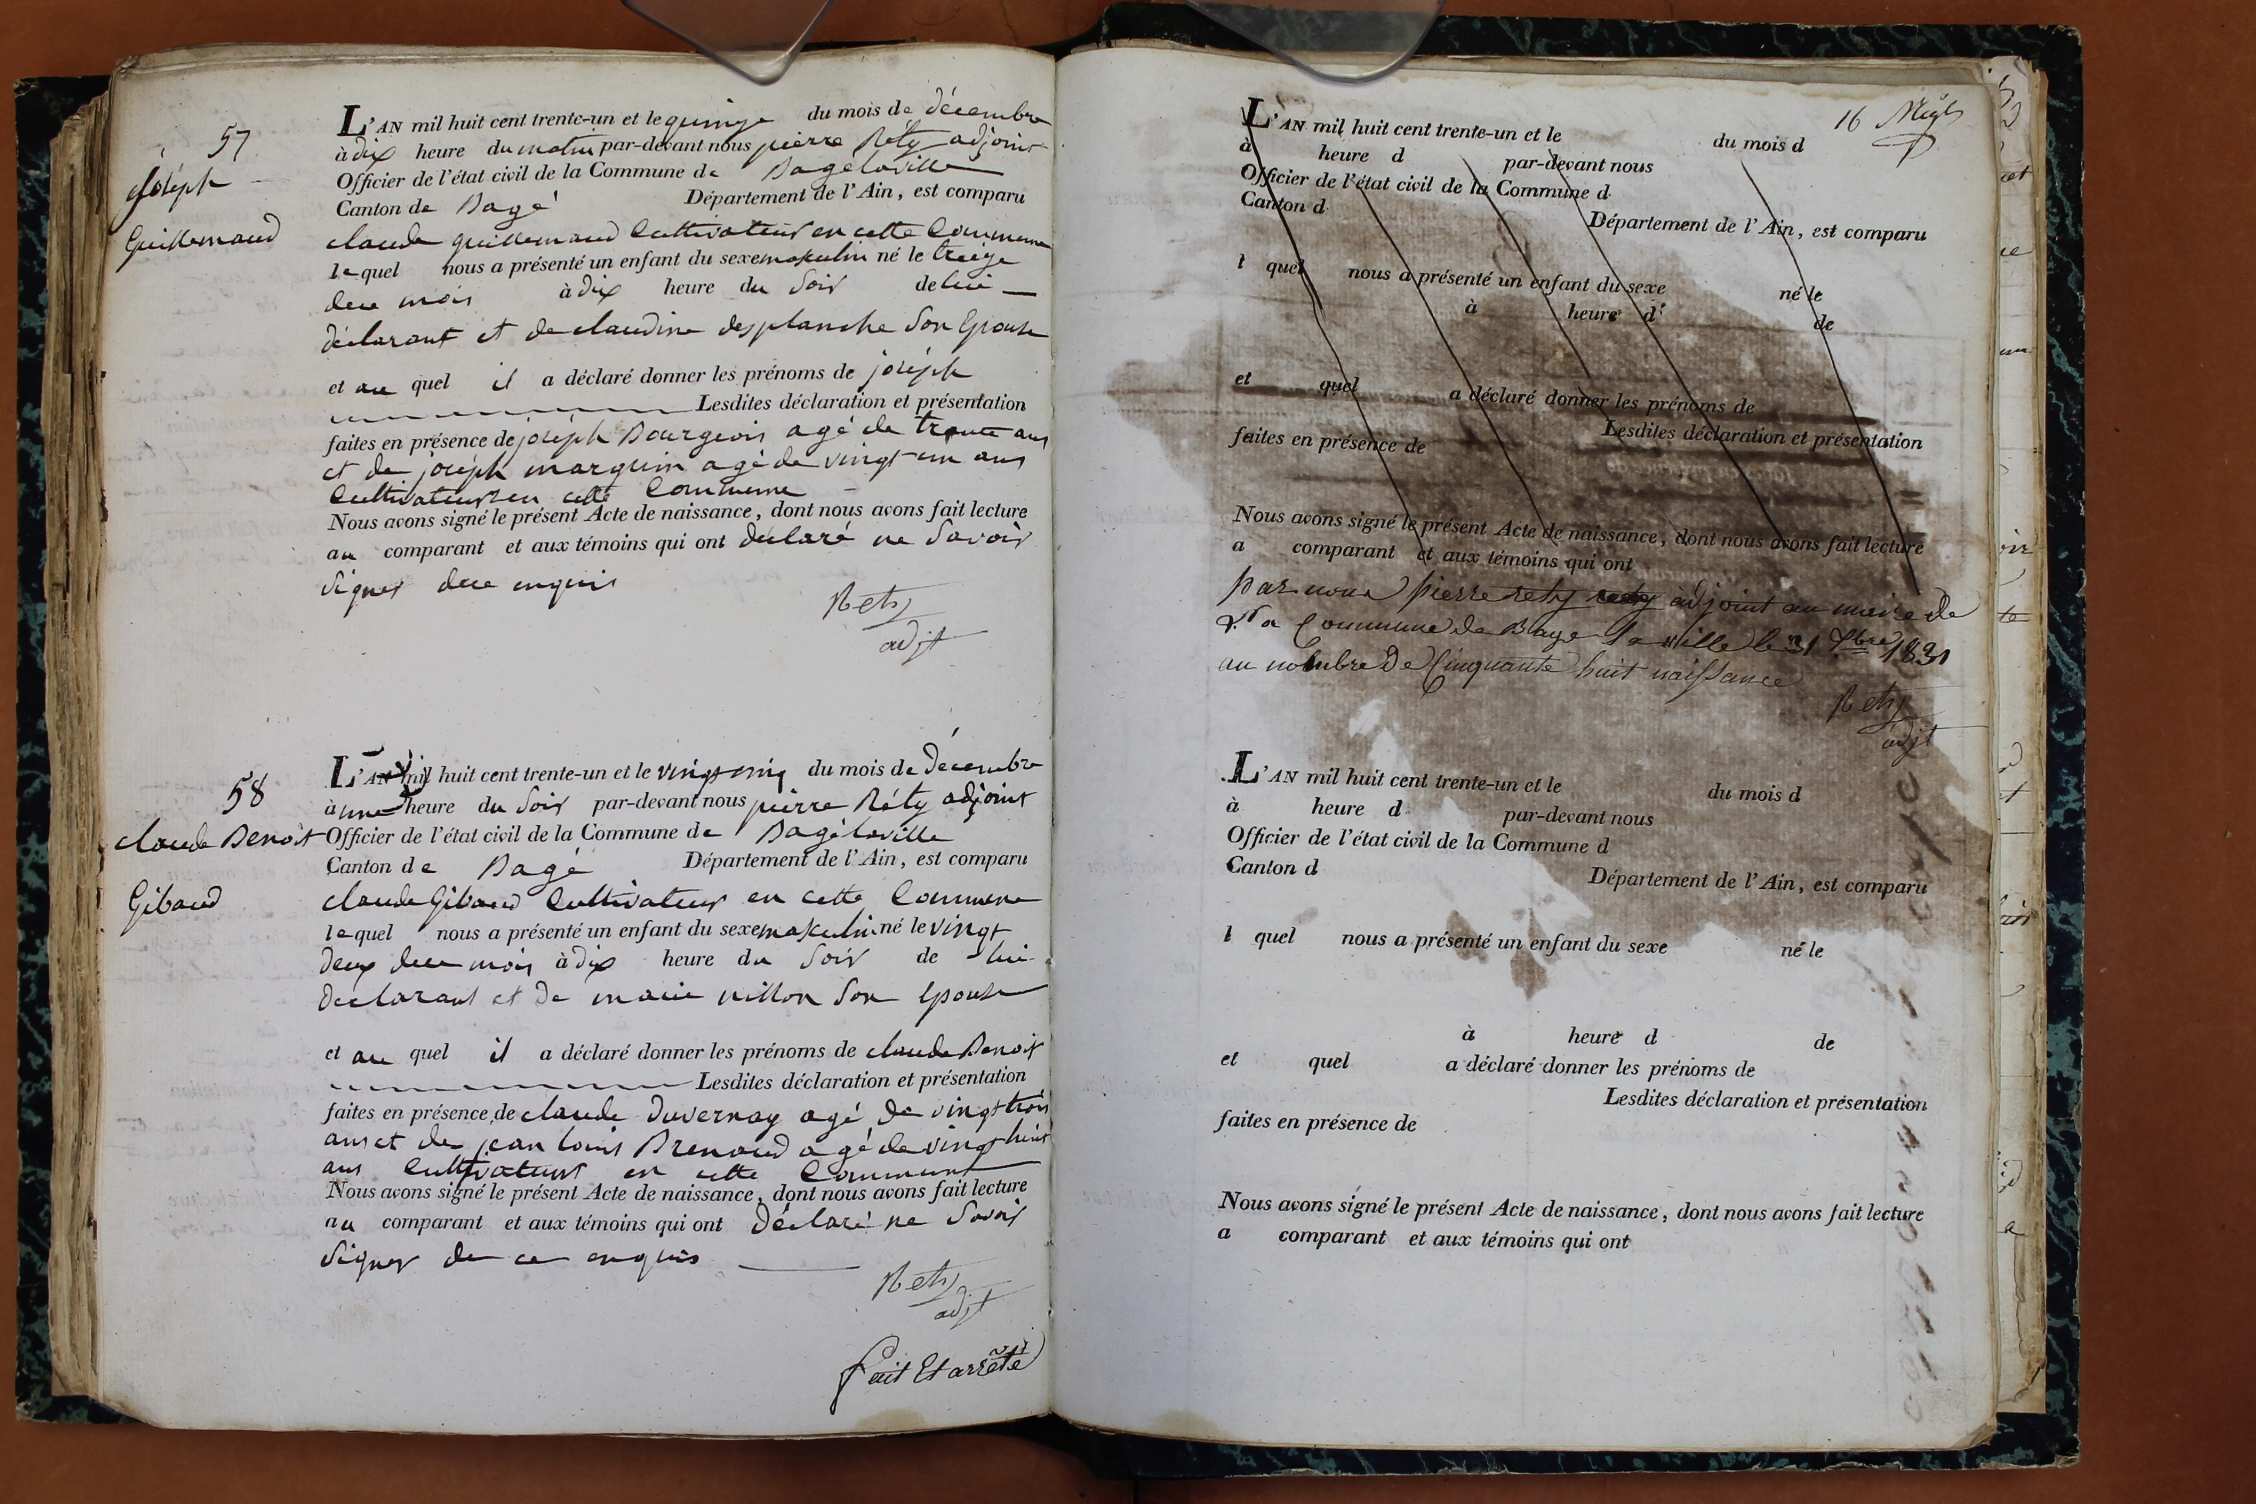 57
joséph
Guillemaud
L'AN mil huit cent trente-un et le quinze du mois de décembre
à dix heure du matin par-devant nous pierre Réty adjoint
Officier de l'état civil de la Commune de Bagélaville
Canton de Bagé Département de l'Ain, est comparu
claude guillemaud Cultivateur en cette Commune
lequel nous a présenté un enfant du sexe maskulin né le treize
du mois à dix heure du Soir de lui
déclarant et de claudine desplanche Son Epouse
et au quel il a déclaré donner les prénoms de joséph
Lesdites déclaration et présentation
faites en présence de joséph Bourgeois agé de trente ans
et de joséph marguin agé de vingt un ans
Cultivateurs en cette Commune
Nous avons signé le présent Acte de naissance, dont nous avons fait lecture
au comparant et aux témoins qui ont déclaré ne Savoir
Signer de ce enquis
Rety
adjt
58
claude Benoit
Gibaud
L'AN mil huit cent trente-un et le vingt cinq du mois de décembre
à une heure du Soir par-devant nous pierre Réty adjoint
Officier de l'état civil de la Commune de Bagélaville
Canton de Bagé Département de l'Ain, est comparu
claude Gibaud Cultivateur en cette Commune
lequel nous a présenté un enfant du sexe maskulin né le vingt
deux du mois à dix heure du Soir de lui
declarant et de marie Son Epouse
et au quel il a déclaré donner les prénoms de claude Benoit
Lesdites déclaration et présentation
faites en présence de claude Duvernay agé de vingt trois
ans et de jean louis Brenaud agé de vingt huit
ans Cultivateurs en cette Commune
Nous avons signé le présent Acte de naissance, dont nous avons fait lecture
au comparant et aux témoins qui ont déclaré ne Savoir
Signer de ce enquis
Rety
adjt
fait Et arrêté
16
L'AN mil huit cent trente-un et le du mois d
à heure d par-devant nous
Officier de l'état civil de la Commune d
Canton d Département de l'Ain, est comparu
l quel nous a présenté un enfant du sexe né le
à heure d de
et quel a déclaré donner les prénoms de
Lesdites déclaration et présentation
faites en présence de
Nous avons signé le présent Acte de naissance, dont nous avons fait lecture
a comparant et aux témoins qui ont
par nous pierre rety adjoint au maire de
la Commune de Bage la ville le 31 Xbre 1831
au nombre De Cinquante huit naissance
Rety
adjt
L'AN mil huit cent trente-un et le du mois d
à heure d par-devant nous
Officier de l'état civil de la Commune d
Canton d Département de l'Ain, est comparu
l quel nous a présenté un enfant du sexe né le
à heure d de
et quel a déclaré donner les prénoms de
Lesdites déclaration et présentation
faites en présence de
Nous avons signé le présent Acte de naissance, dont nous avons fait lecture
a comparant et aux témoins qui ont